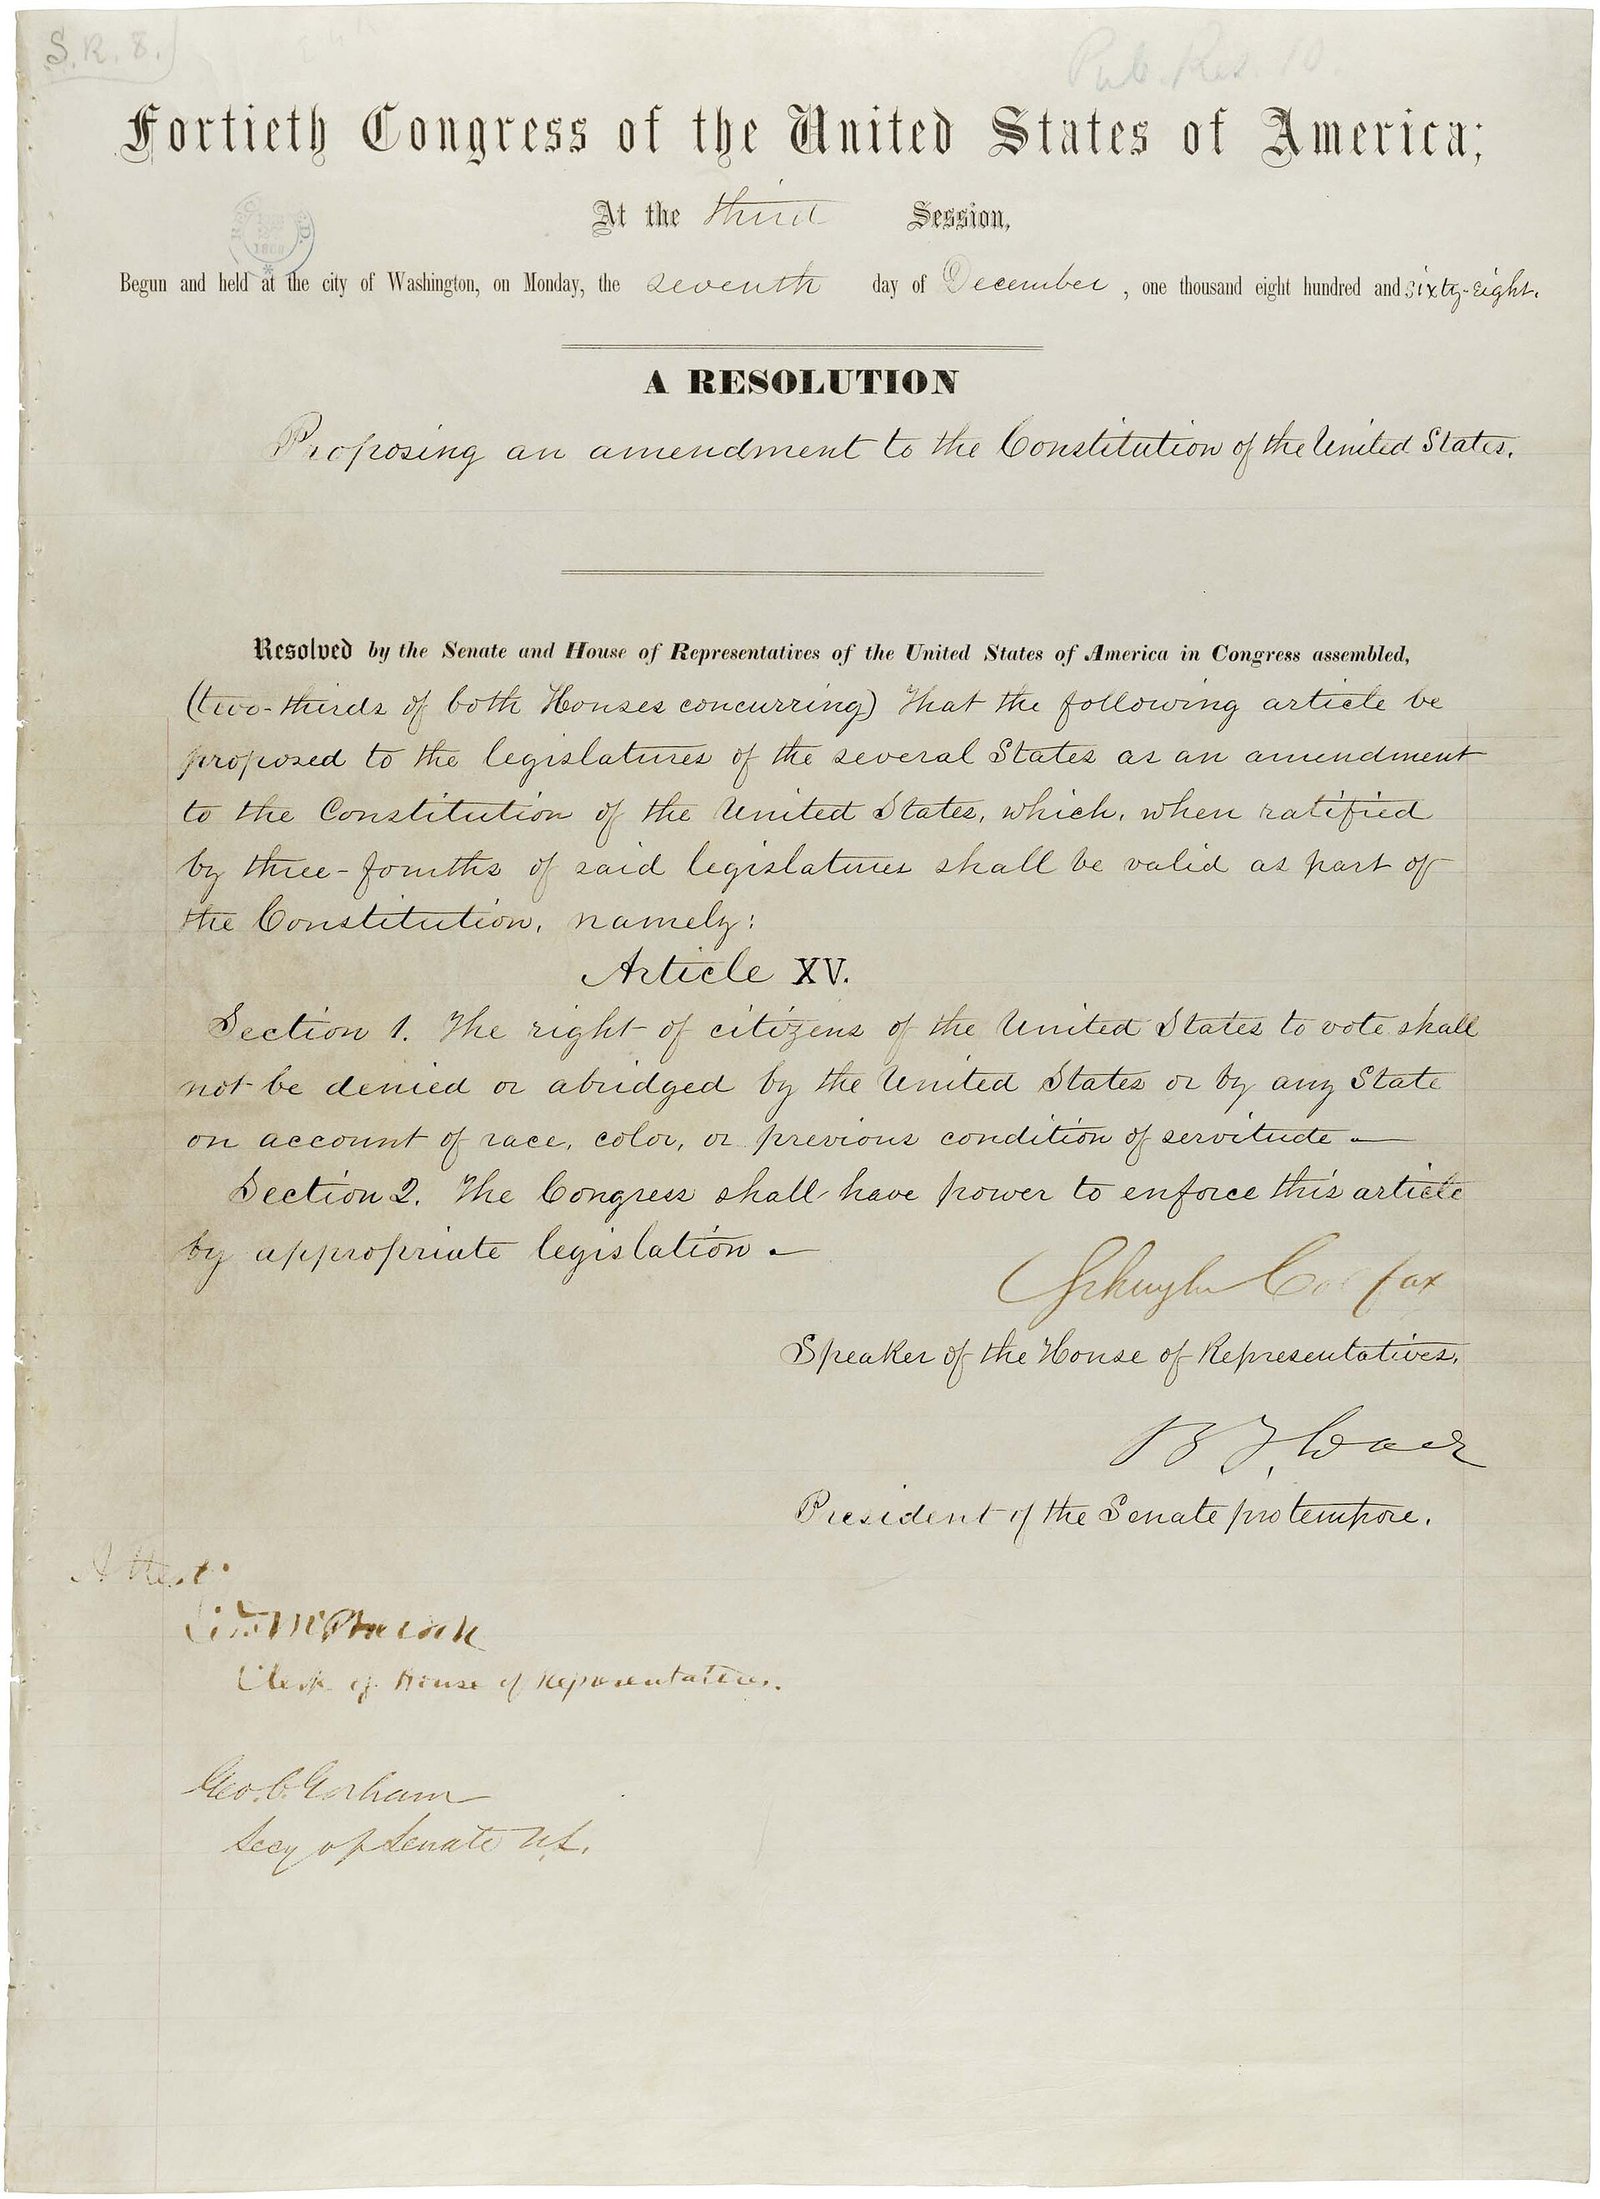 S.R. 8.
Pub. Res. 10.
Fortieth Congress of the United States of America;
At the third Session,
Begun and held at the city of Washington, on Monday, the seventh day of December, one thousand eight hundred and sixty-eight.
A RESOLUTION
Proposing an amendment to the Constitution of the United States.
Resolved by the Senate and House of Representatives of the United States of America in Congress assembled,
(two-thirds of both Houses concurring) That the following article be
proposed to the legislatures of the several States as an amendment
to the Constitution of the United States, which, when ratified
by three-fourths of said legislatures shall be valid as part of
the Constitution, namely:
Article XV.
Section 1. The right of citizens of the United States to vote shall
not be denied or abridged by the United States or by any State
on account of race, color, or previous condition of servitude.
Section 2. The Congress shall have power to enforce this article
by appropriate legislation.
Schuyler Colfax
Speaker of the House of Representatives.
B F Wade
President of the Senate pro tempore.
Attest:
McPherson
Clerk of House of Representatives.
Geo. C. Gorham
Secy of Senate U.S.